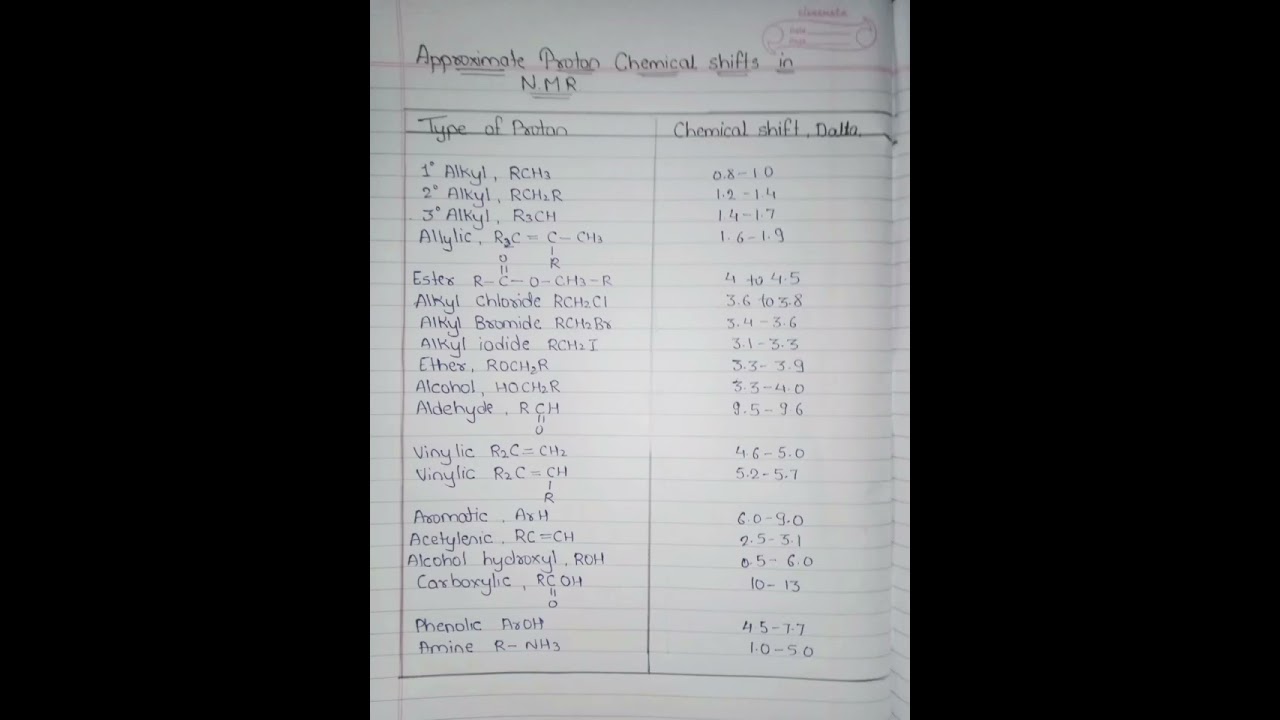 classmate
Date
Page
Approximate Proton Chemical shifts in
N.MR
Type of Proton Chemical shift, Dalta.
1° Alkyl, RCH3 0.8-1 0
2° Alkyl, RCH2R 1.2 -1.4
3° Alkyl, R3CH 1.4-1.7
Allylic, R2C = C- CH3 1.6-1.9
R
O
Ester R-C-O-CH3-R 4 to 4.5
Alkyl Chloride RCH2Cl 3.6 to 3.8
Alkyl Bromide RCH2Br 3.4 -3.6
Alkyl iodide RCH2I 3.1-3.3
Ether, ROCH2R 3.3- 3.9
Alcohol, HOCH2R 3.3-4.0
Aldehyde, RCH 9.5-9 6
O
Vinylic R2C=CH2 4.6-5.0
Vinylic R2C=CH 5.2-5.7
R
Aromatic, ArH 6.0-9.0
Acetylenic, RC=CH 2.5-3.1
Alcohol hydroxyl, ROH 0.5- 6.0
Carboxylic, RCOH 10- 13
O
Phenolic ArOH 4 5-7.7
Amine R- NH3 1.0-5 0